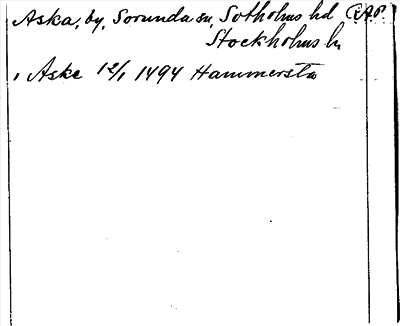 Aska, by, Sorunda sn, Sotholms hd
Stockholms l.
, Aske 12/1 1494 Hammersta